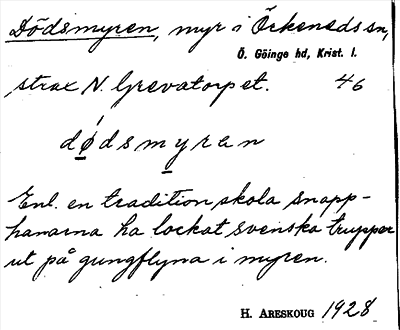 Dödsmyren, myr i Örkeneds sn,
Ö. Göinge hd, Krist. l.
strax N. Grevatorpet. 46
dødsmyren
Enl. en tradition skola snapp-
hanarna ha lockat svenska trupper
ut på gungflyna i myren.
H. ARESKOUG 1928